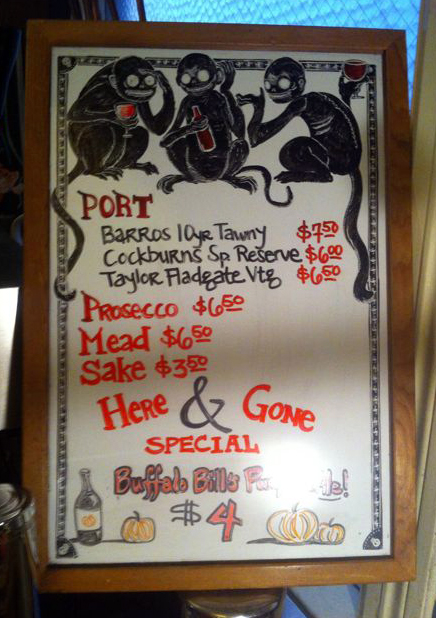 PORT
Barros 10yr Tawny $7.50
Cockburns Sp. Reserve $6.00
Taylor Fladgate Vtg $6.50
Prosecco $6.50
Mead $6.50
Sake $3.50
Here & Gone
SPECIAL
Buffalo Bill's
$4